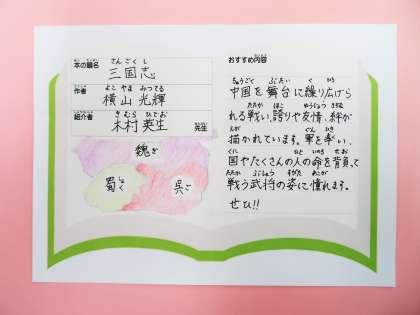 本の題名
さんごくし
三国志
作者
よこ やま みつてる
横山 光輝
紹介者
きむら ひでお
木村 英生 先生
魏ぎ
蜀しょく
呉ご
おすすめ内容
ちゅうごく ぶたい く ひろ
中国を舞台に繰り広げら
たたか ほこ ゆうじょう きずな
れる戦い。誇りや友情、絆が
えが ぐん ひき
描かれています。軍を率い、
くに ひと いのち せお
国やたくさんの人の命を背負って
たたか ぶしょう すがた あこが
戦う武将の姿に憧れます。
ぜひ!!